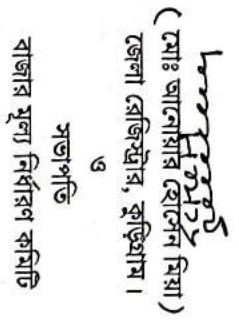 ( মোঃ আনোয়ার হোসেন মিয়া )
জেলা রেজিস্ট্রার, কুড়িগ্রাম।
ও
সভাপতি
বাজার মূল্য নির্ধারণ কমিটি